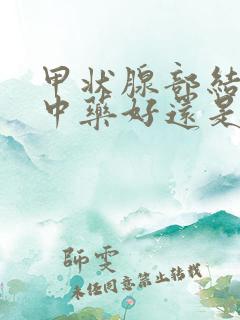 甲状腺部結
中药好還是
師雯
未经同意禁止转载